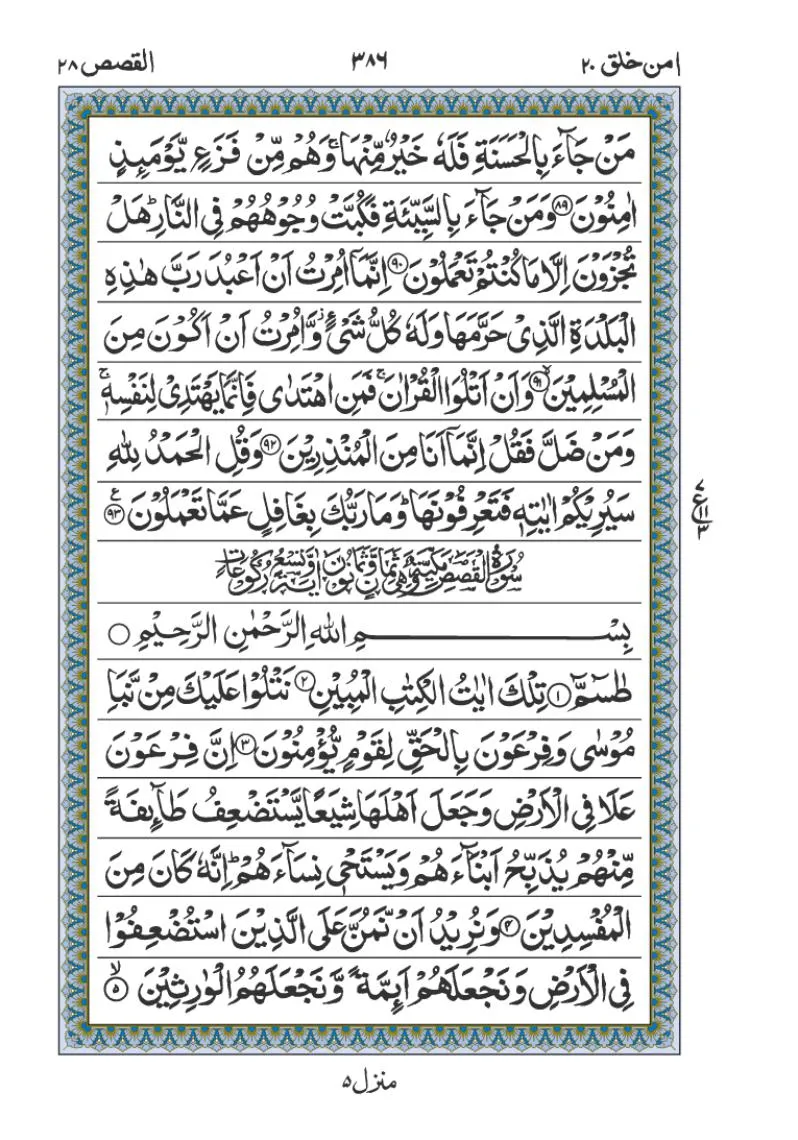 امن خلق ٢٠ ٣٨٦ القصص ٢٨
مَنْ جَآءَ بِالْحَسَنَةِ فَلَهٗ خَيْرٌ مِّنْهَا ۚ وَهُمْ مِّنْ فَزَعٍ يَّوْمَىِٕذٍ
اٰمِنُوْنَ ﴿٨٩﴾ وَمَنْ جَآءَ بِالسَّيِّئَةِ فَكُبَّتْ وُجُوْهُهُمْ فِى النَّارِ ؕ هَلْ
تُجْزَوْنَ اِلَّا مَا كُنْتُمْ تَعْمَلُوْنَ ﴿٩٠﴾ اِنَّمَاۤ اُمِرْتُ اَنْ اَعْبُدَ رَبَّ هٰذِهِ
الْبَلْدَةِ الَّذِىْ حَرَّمَهَا وَلَهٗ كُلُّ شَىْءٍ ؗ وَّاُمِرْتُ اَنْ اَكُوْنَ مِنَ
الْمُسْلِمِيْنَ ۙ﴿٩١﴾ وَاَنْ اَتْلُوَا الْقُرْاٰنَ ۚ فَمَنِ اهْتَدٰى فَاِنَّمَا يَهْتَدِىْ لِنَفْسِهٖ ۚ
وَمَنْ ضَلَّ فَقُلْ اِنَّمَاۤ اَنَا مِنَ الْمُنْذِرِيْنَ ﴿٩٢﴾ وَقُلِ الْحَمْدُ لِلّٰهِ
سَيُرِيْكُمْ اٰيٰتِهٖ فَتَعْرِفُوْنَهَا ؕ وَمَا رَبُّكَ بِغَافِلٍ عَمَّا تَعْمَلُوْنَ ﴿٩٣﴾ ع
٧
ع ١١
٣
سُوْرَةُ الْقَصَصِ مَكِّيَّةٌ وَّهِىَ ثَمَانٍ وَّثَمَانُوْنَ اٰيَةً وَّتِسْعُ رُكُوْعَاتٍ
بِسْمِ اللهِ الرَّحْمٰنِ الرَّحِيْمِ ○
طٰسٓمّٓ ﴿١﴾ تِلْكَ اٰيٰتُ الْكِتٰبِ الْمُبِيْنِ ﴿٢﴾ نَتْلُوْا عَلَيْكَ مِنْ نَّبَاِ
مُوْسٰى وَفِرْعَوْنَ بِالْحَقِّ لِقَوْمٍ يُّؤْمِنُوْنَ ﴿٣﴾ اِنَّ فِرْعَوْنَ
عَلَا فِى الْاَرْضِ وَجَعَلَ اَهْلَهَا شِيَعًا يَّسْتَضْعِفُ طَآىِٕفَةً
مِّنْهُمْ يُذَبِّحُ اَبْنَآءَهُمْ وَيَسْتَحْىٖ نِسَآءَهُمْ ؕ اِنَّهٗ كَانَ مِنَ
الْمُفْسِدِيْنَ ﴿٤﴾ وَنُرِيْدُ اَنْ نَّمُنَّ عَلَى الَّذِيْنَ اسْتُضْعِفُوْا
فِى الْاَرْضِ وَنَجْعَلَهُمْ اَىِٕمَّةً وَّنَجْعَلَهُمُ الْوٰرِثِيْنَ ۙ﴿٥﴾
منزل ٥